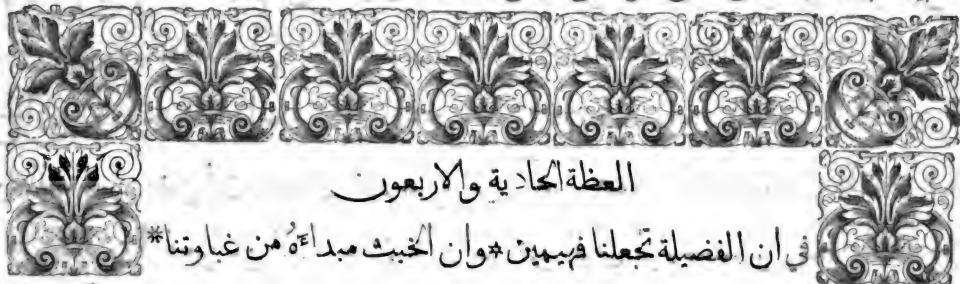 العظة الحادية والاربعون
في ان الفضيلة تجعلنا فهيمين * وان الخبث مبداءَهُ من غباوتنا *